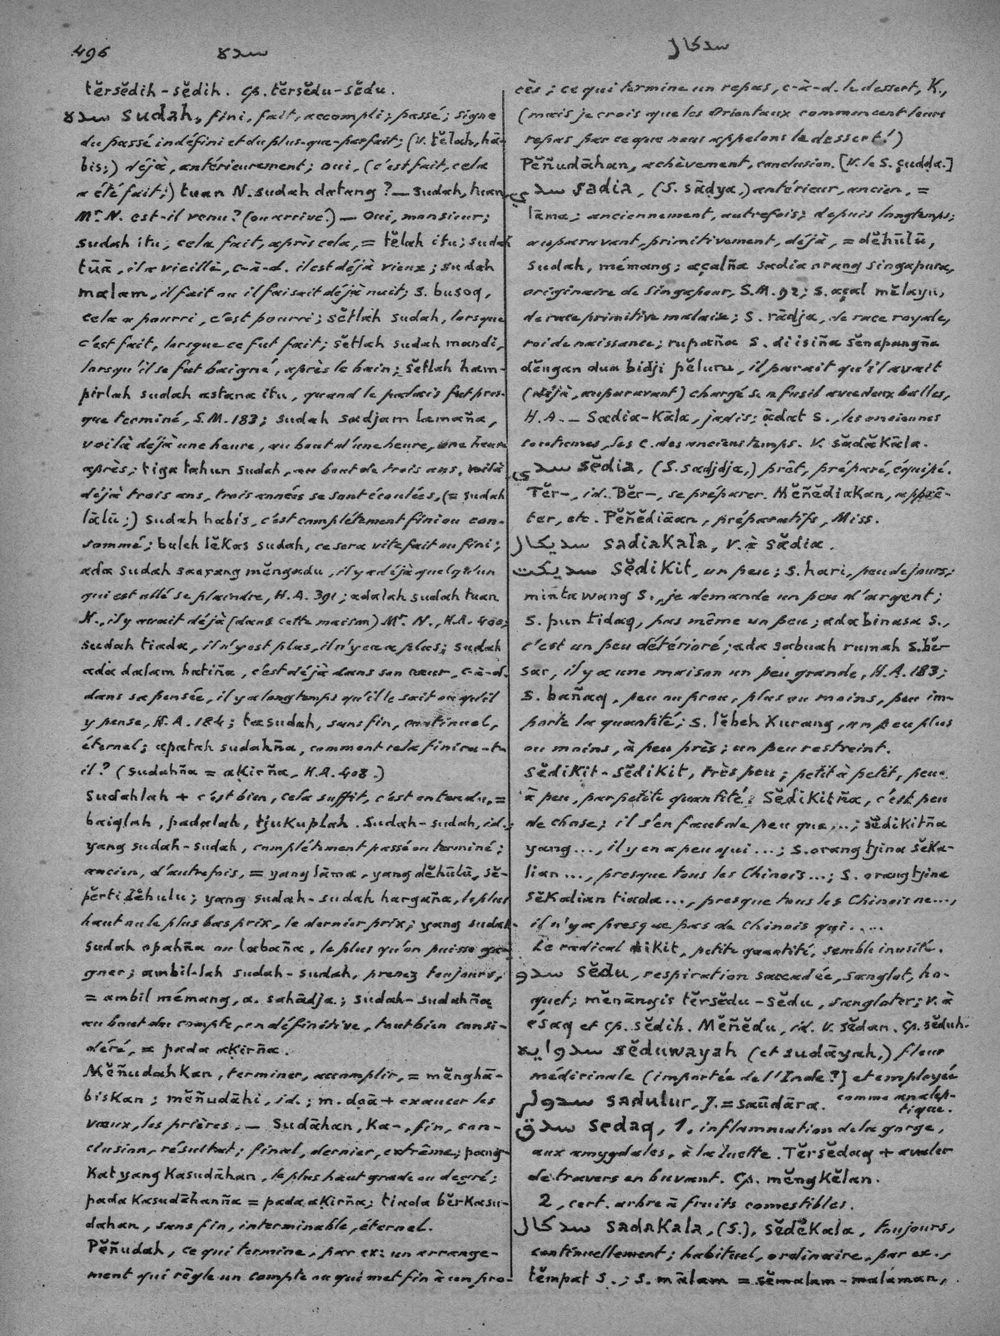 496 سده سدكال
tĕrsĕdih-sĕdih. Cp. tĕrsĕdu-sĕdu.
سده sudah, fini, fait, accompli; passé; signe
du passé indéfini et du plus-que-parfait; (V. tĕlah, hā-
bis;) déjà, antérieurement; oui, (c'est fait, cela
a été fait;) tuan N. sudah datang? — sudah, tuan,
Mr. N. est-il venu? (ou arrivé?) — Oui, monsieur;
sudah itu, cela fait, après cela, = tĕlah itu; sudah
tūā, il a vieilli, c-à-d. il est déjà vieux; sudah
malam, il fait ou il faisait déjà nuit; s. busoq,
cela a pourri, c'est pourri; sĕtlah sudah, lorsque
c'est fait, lorsque ce fut fait; sĕtlah sudah mandi,
lorsqu'il se fut baigné, après le bain; sĕtlah ham-
pirlah sudah astana itu, quand le palais fut pres-
que terminé, S.M. 183; sudah sadjam lamaña,
voilà déjà une heure, au bout d'une heure, une heure
après; tiga tahun sudah, au bout de trois ans, voilà
déjà trois ans, trois années se sont écoulées, (= sudah
lālū;) sudah habis, c'est complètement fini ou con-
sommé; buleh lĕkas sudah, ce sera vite fait ou fini;
ada sudah saorang mĕngadu, il y a déjà quelqu'un
qui est allé se plaindre, H.A. 391; adalah sudah tuan
N., il y avait déjà (dans cette maison) Mr. N., H.A. 400;
sudah tiada, il n'y est plus, il n'y en a plus; sudah
ada dalam hatiña, c'est déjà dans son cœur, c-à-d.
dans sa pensée, il y a longtemps qu'il le sait ou qu'il
y pense, H.A. 184; ta sudah, sans fin, continuel,
éternel; apatah sudahña, comment cela finira-t-
il? (sudahña = akirña, H.A. 408.)
Sudahlah + c'est bien, cela suffit, c'est entendu, =
baiqlah, padalah, tjukuplah. Sudah-sudah, id.;
yang sudah-sudah, complètement passé ou terminé;
ancien, d'autrefois, = yang lāma, yang dĕhūlū, sĕ-
pĕrti dĕhulu; yang sudah-sudah hargaña, le plus
haut ou le plus bas prix, le dernier prix; yang sudah-
sudah apahña ou labaña, le plus qu'on puisse ga-
gner; ambil-lah sudah-sudah, prenez toujours,
= ambil mémang, a. sahādja; sudah-sudahña
au bout du compte, en définitive, tout bien consi-
déré, = pada akirña.
Mĕñudahkan, terminer, accomplir, = mĕnghā-
biskan; mĕñudāhi, id.; m. doā + exaucer les
vœux, les prières. — Sudāhan, Ka-, fin, con-
clusion, résultat; final, dernier, extrême; pang-
kat yang kasudāhan, le plus haut grade ou degré;
pada kasudāhanña = pada akirña; tiada bĕrkasu-
dahan, sans fin, interminable, éternel.
Pĕñudah, ce qui termine, par ex: un arrange-
ment qui règle un compte ou qui met fin à un pro-
cès; ce qui termine un repas, c-à-d. le dessert, K.,
(mais je crois que les Orientaux commencent leurs
repas par ce que nous appelons le dessert!)
Pĕñudāhan, achèvement, conclusion. [V. le S. çuddạ.]
سدي sadia, (S. sādya,) antérieur, ancien, =
lāma; anciennement, autrefois; depuis longtemps;
auparavant, primitivement, déjà, = dĕhūlū,
sudah, mémang; açalña sadia orang Singapura,
originaire de Singapour, S.M. 92; s. açal mĕlayu,
de race primitive malaise; s. rādja, de race royale,
roi de naissance; rupaña s. di isiña sĕnapangña
dĕngan dua bidji pĕluru, il parait qu'il avait
(déjà, auparavant) chargé son fusil avec deux balles,
H.A. — Sadia-Kāla, jadis; ādat s., les anciennes
coutumes, les c. des anciens temps. V. sādăkāla.
سدي sĕdia, (S. sadjdja,) prêt, préparé, équipé.
Tĕr-, id. Bĕr-, se préparer. Mĕñĕdiakan, apprê-
ter, etc. Pĕñĕdiāan, préparatifs, Miss.
سديكال sadiakala, V. à sădia.
سديكت sĕdikit, un peu; s. hari, peu de jours;
minta wang s., je demande un peu d'argent;
s. pun tidaq, pas même un peu; ada binasa s.,
c'est un peu détérioré; ada sabuah rumah s. bĕ-
sar, il y a une maison un peu grande, H.A. 183;
s. bañaq, peu ou prou, plus ou moins, peu im-
porte la quantité; s. lĕbeh kurang, un peu plus
ou moins, à peu près; un peu restreint.
sĕdikit-sĕdikit, très peu; petit à petit, peu
à peu, par petite quantité. Sĕdikitña, c'est peu
de chose; il s'en faut de peu que...; sĕdikitña
yang..., il y en a peu qui...; s. orang tjina sĕka-
lian..., presque tous les Chinois...; s. orang tjina
sĕkalian tiada..., presque tous les Chinois ne...,
il n'y a presque pas de Chinois qui....
Le radical dikit, petite quantité, semble inusité.
سدو sĕdu, respiration saccadée, sanglot, ho-
quet; mĕnāngis tĕrsĕdu-sĕdu, sangloter; V. à
ésaq et cp. sĕdih. Mĕñĕdu, id. V. sĕdan. Cp. sĕduh.
سدوايه sĕduwayah (et sudāyah,) fleur
médicinale (importée de l'Inde?) et employée
comme analep-
tique.
سدولر sadulur, J. = saūdāra.
سدق sedaq, 1, inflammation de la gorge,
aux amygdales, à la luette. Tĕrsĕdaq + avaler
de travers en buvant. Cp. mĕngkĕlan.
2, cert. arbre à fruits comestibles.
سدكال sadakala, (S.), sĕdĕkala, toujours,
continuellement; habituel, ordinaire, par ex.,
tĕmpat s.; s. mālam = sĕmalam-malāman,